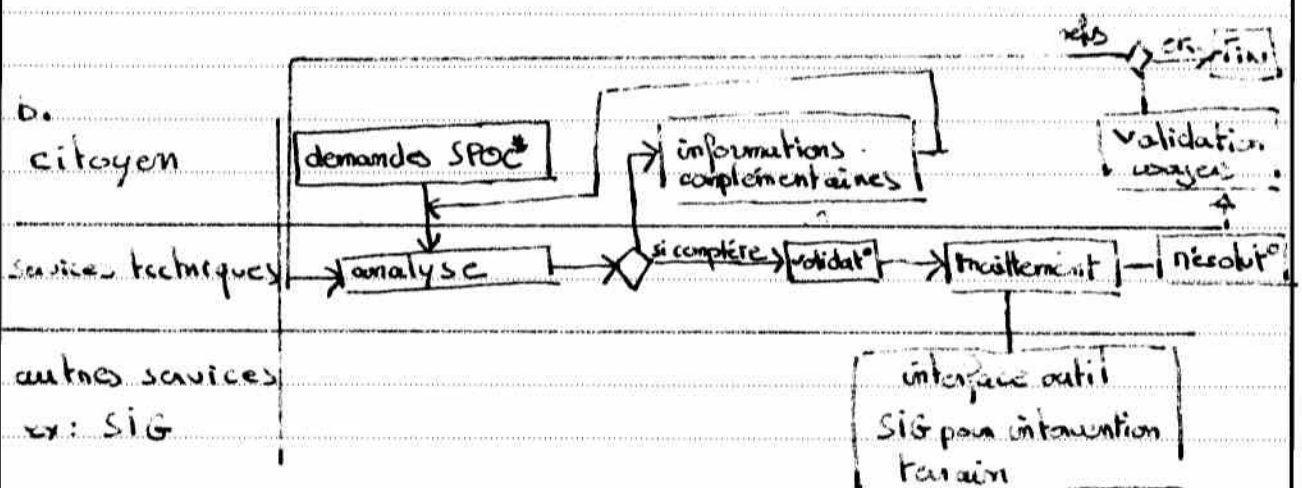 refus
ok
Fin
b.
citoyen
demandes SPOC*
informations
complémentaires
Validation
usager
services techniques
analyse
si complète
validat°
traittement
résolut°
autres services
ex: SIG
interface outil
SIG pour intervention
terrain